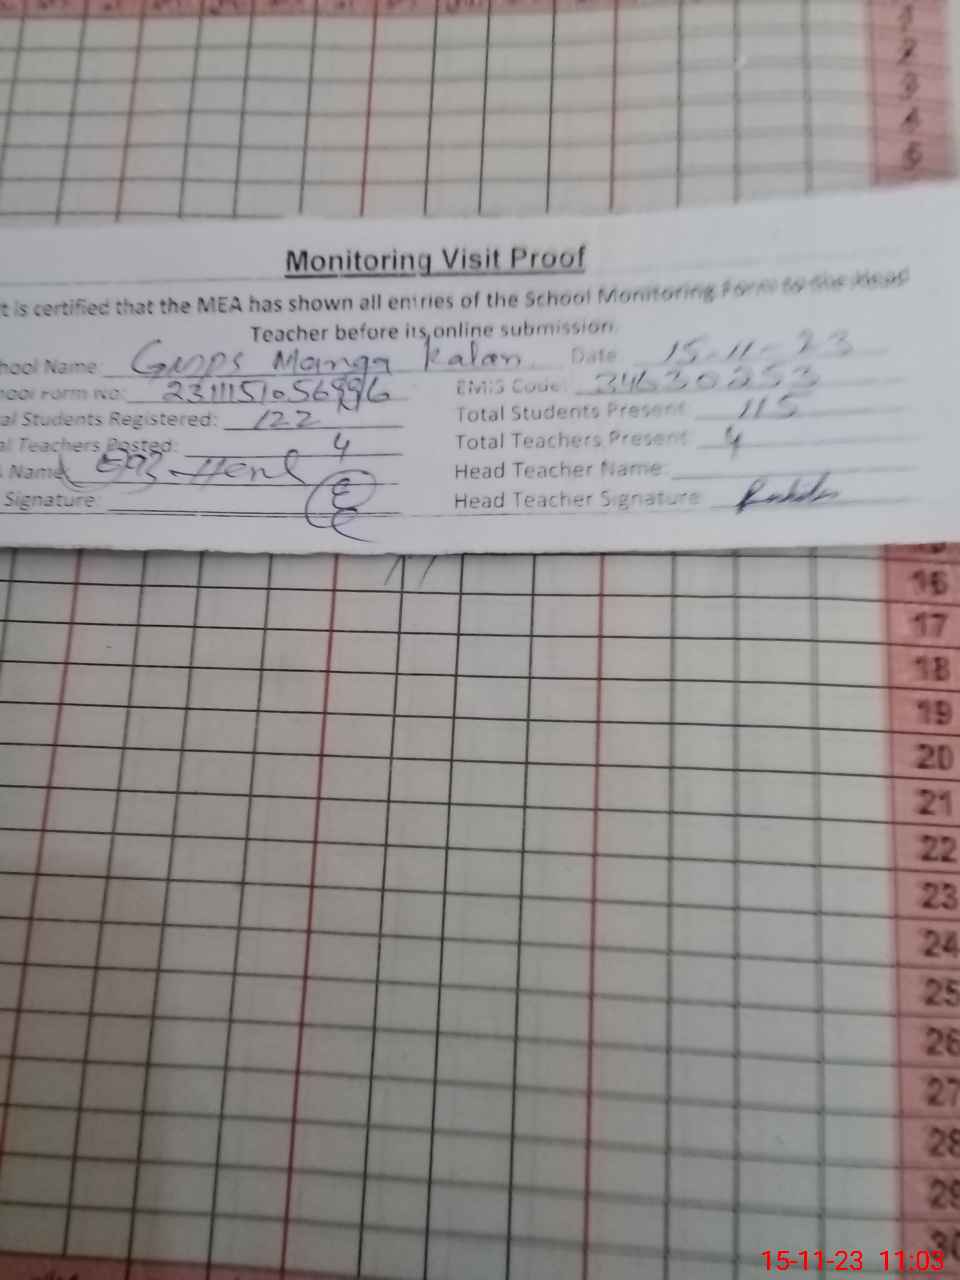 1
2
3
4
5
Monitoring Visit Proof
t is certified that the MEA has shown all entries of the School Monitoring Form to the Head
Teacher before its online submission.
hool Name: GMPS Manga Kalan Date 15-11-23
hool Form No: EMIS Code: 34630253
al Students Registered: 122 Total Students Present 115
al Teachers Posted: 4 Total Teachers Present 4
Name Head Teacher Name:
Signature: Head Teacher Signature
16
17
18
19
20
21
22
23
24
25
26
27
28
29
30
15-11-23 11:03